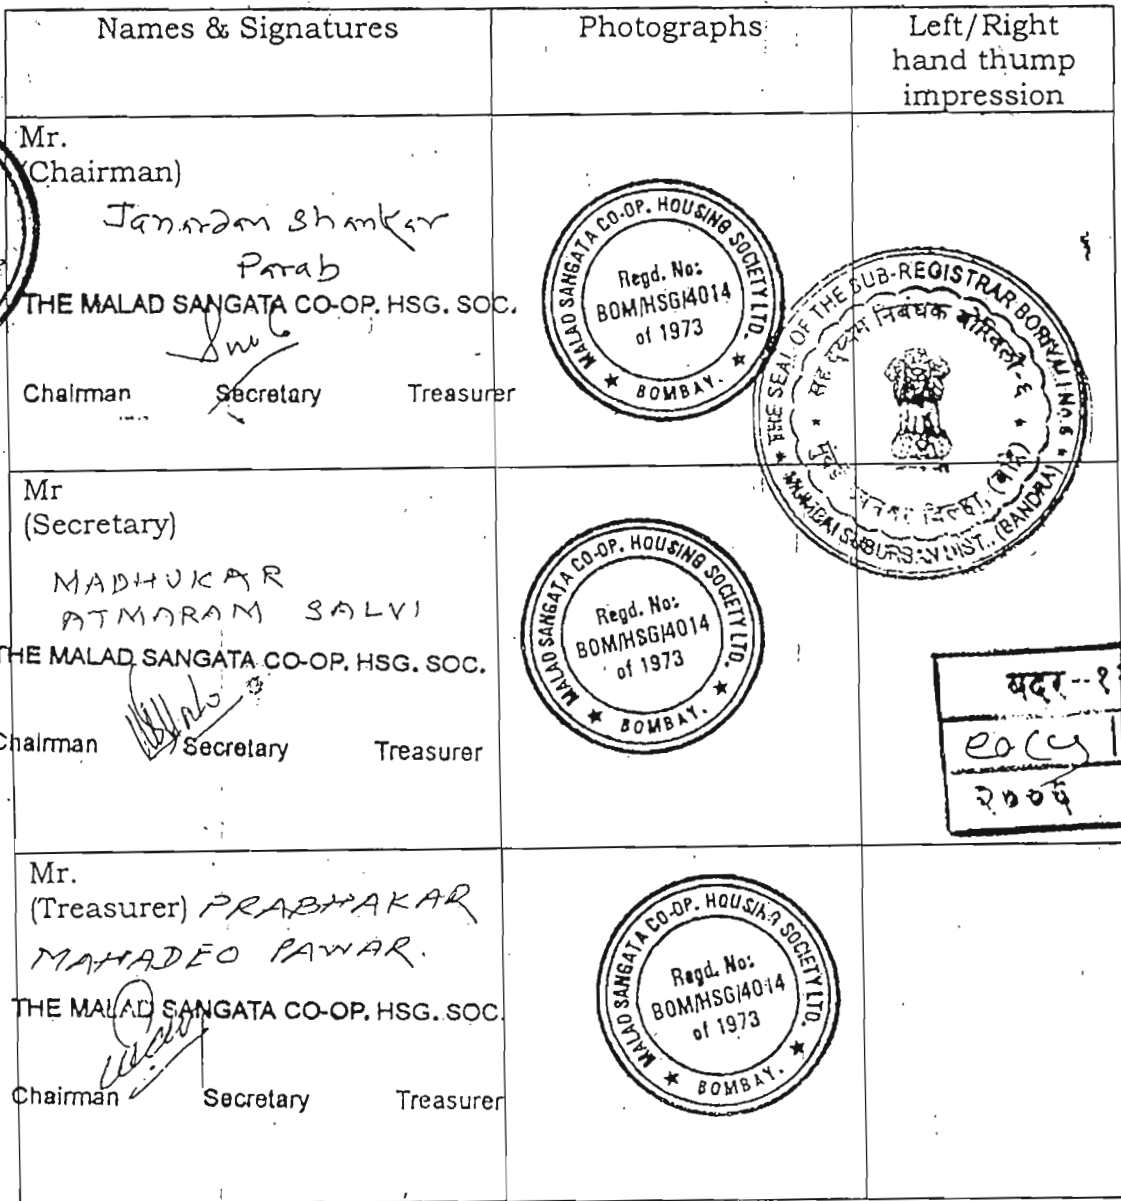 Names & Signatures
Photographs
Left/Right
hand thump
impression
Mr.
(Chairman)
Janardan Shankar
Parab
THE MALAD SANGATA CO-OP. HSG. SOC.
Chairman Secretary Treasurer
MALAD SANGATA CO-OP. HOUSING SOCIETY LTD.
Regd. No:
BOM/HSG/4014
of 1973
★ BOMBAY. ★
THE SEAL OF THE SUB-REGISTRAR BORIVALI No. 6
निबंधक बोरिवली-६
MUMBAI SUBURBAN DIST. (BANDRA)
Mr
(Secretary)
MADHUKAR
ATMARAM SALVI
THE MALAD SANGATA CO-OP. HSG. SOC.
Chairman Secretary Treasurer
MALAD SANGATA CO-OP. HOUSING SOCIETY LTD.
Regd. No:
BOM/HSG/4014
of 1973
★ BOMBAY. ★
बदर--१
२००५
Mr.
(Treasurer) PRABHAKAR
MAHADEO PAWAR.
THE MALAD SANGATA CO-OP. HSG. SOC.
Chairman Secretary Treasurer
MALAD SANGATA CO-OP. HOUSING SOCIETY LTD.
Regd. No:
BOM/HSG/4014
of 1973
★ BOMBAY. ★